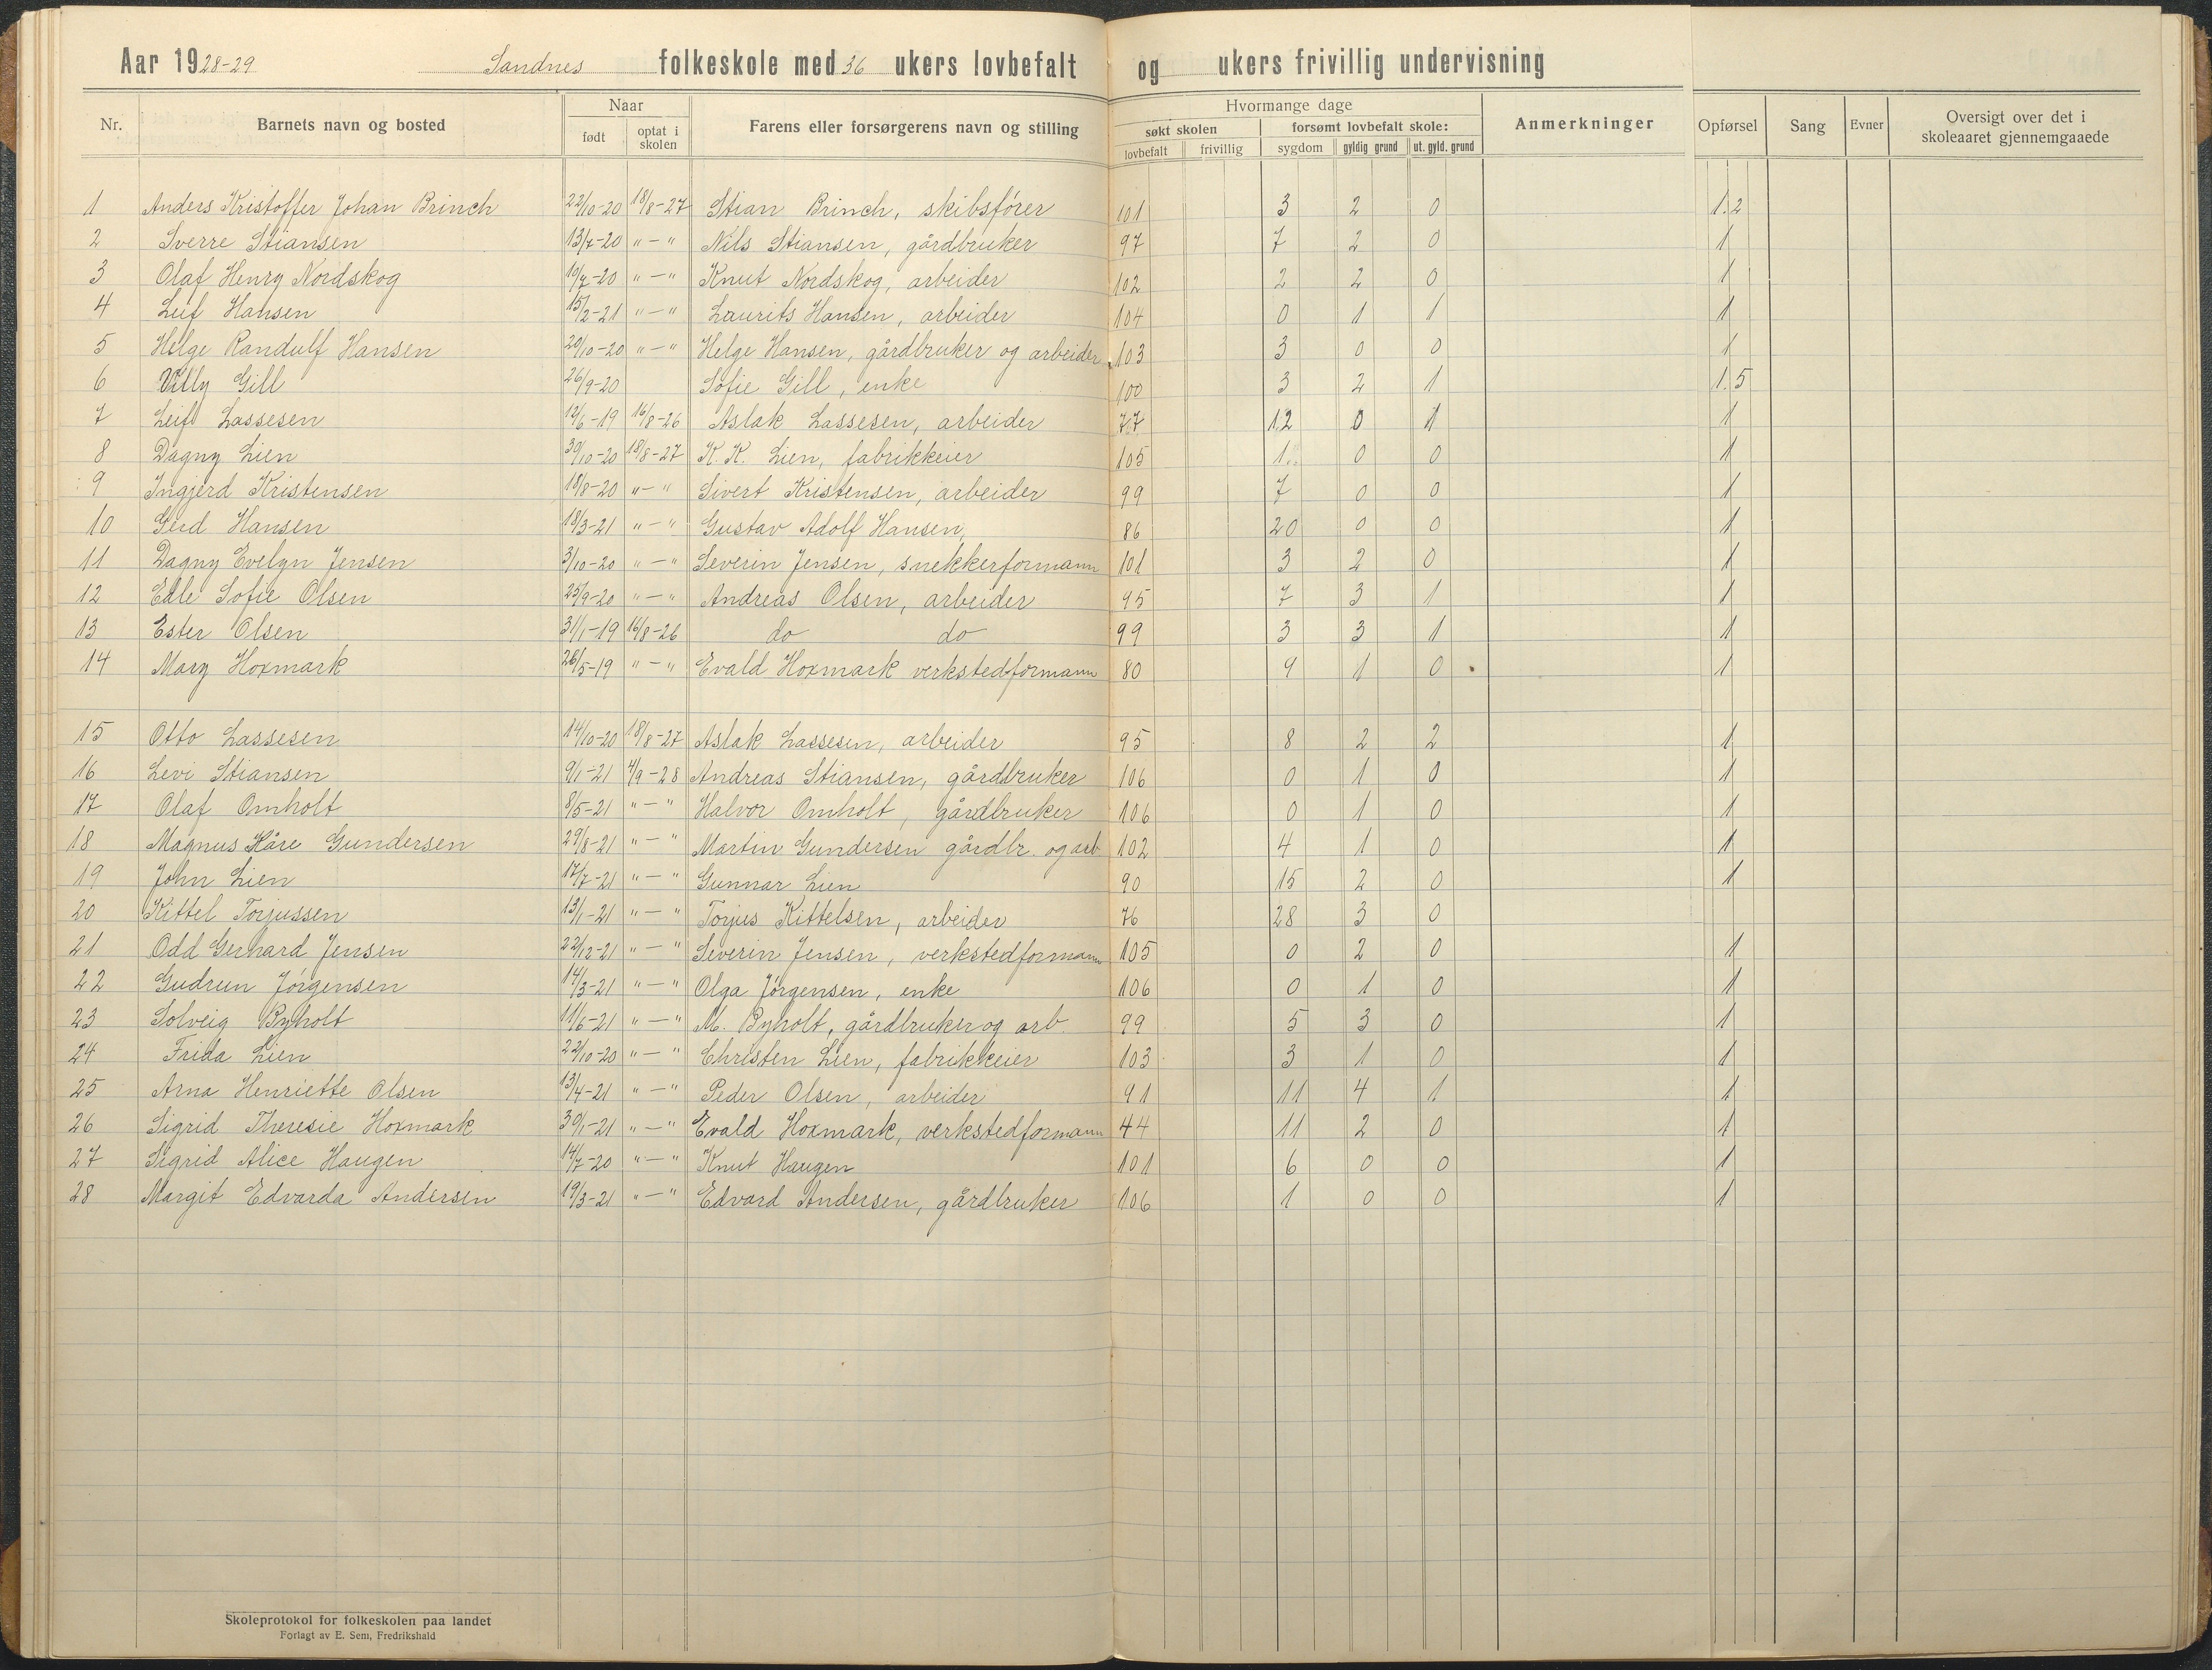 Aar 1928-29 Sandnes folkeskole med 36 ukers lovbefalt og ukers frivillig undervisning
Nr. Barnets navn og bosted Naar født optat i skolen Farens eller forsørgerens navn og stilling Hvormange dage søkt skolen lovbefalt frivillig forsømt lovbefalt skole: sygdom gyldig grund ut. gyld. grund Anmerkninger Opførsel Sang Evner Oversigt over det i skoleaaret gjennemgaaede
1 Anders Kristoffer Johan Brinch 22/10-20 18/8-27 Stian Brinch, skibsfører 101 3 2 0 1.2
2 Sverre Stiansen 13/7-20 "-" Nils Stiansen, gårdbruker 97 7 2 0 1
3 Olaf Henry Nordskog 10/7-20 "-" Knut Nordskog, arbeider 102 2 2 0 1
4 Leif Hansen 15/2-21 "-" Laurits Hansen, arbeider 104 0 1 1 1
5 Helge Randulf Hansen 20/10-20 "-" Helge Hansen, gårdbruker og arbeider 103 3 0 0 1
6 Villy Gill 26/9-20 Sofie Gill, enke 100 3 2 1 1.5
7 Leif Lassesen 12/6-19 16/8-26 Aslak Lassesen, arbeider 77 12 0 1 1
8 Dagny Lien 30/10-20 18/8-27 K. K. Lien, fabrikkeier 105 1 0 0 1
9 Ingjerd Kristensen 18/8-20 "-" Sivert Kristensen, arbeider 99 7 0 0 1
10 Gerd Hansen 18/3-21 "-" Gustav Adolf Hansen, 86 20 0 0 1
11 Dagny Evelyn Jensen 3/10-20 "-" Severin Jensen, snekkerformann 101 3 2 0 1
12 Edle Sofie Olsen 25/9-20 "-" Andreas Olsen, arbeider 95 7 3 1 1
13 Ester Olsen 31/1-19 16/8-26 do do 99 3 3 1 1
14 Mary Hoxmark 26/5-19 "-" Evald Hoxmark verkstedformann 80 9 1 0 1
15 Otto Lassesen 14/10-20 18/8-27 Aslak Lassesen, arbeider 95 8 2 2 1
16 Levi Stiansen 9/1-21 4/9-28 Andreas Stiansen, gårdbruker 106 0 1 0 1
17 Olaf Omholt 8/5-21 "-" Halvor Omholt, gårdbruker 106 0 1 0 1
18 Magnus Kåre Gundersen 29/8-21 "-" Martin Gundersen gårdbr. og arb 102 4 1 0 1
19 John Lien 17/7-21 "-" Gunnar Lien 90 15 2 0 1
20 Kittel Torjussen 13/1-21 "-" Torjus Kittelsen, arbeider 76 28 3 0
21 Odd Gerhard Jensen 22/12-21 "-" Severin Jensen, verkstedformann 105 0 2 0 1
22 Gudrun Jørgensen 14/3-21 "-" Olga Jørgensen, enke 106 0 1 0 1
23 Solveig Byholt 11/6-21 "-" M. Byholt, gårdbruker og arb. 99 5 3 0 1
24 Frida Lien 22/10-20 "-" Christen Lien, fabrikkeier 103 3 1 0 1
25 Arna Henriette Olsen 13/4-21 "-" Peder Olsen, arbeider 91 11 4 1 1
26 Sigrid Theresie Hoxmark 30/1-21 "-" Evald Hoxmark, verkstedformann 44 11 2 0 1
27 Sigrid Alice Haugen 14/7-20 "-" Knut Haugen 101 6 0 0 1
28 Margit Edvarda Andersen 19/3-21 "-" Edvard Andersen, gårdbruker 106 1 0 0 1
Skoleprotokol for folkeskolen paa landet
Forlagt av E. Sem, Fredrikshald